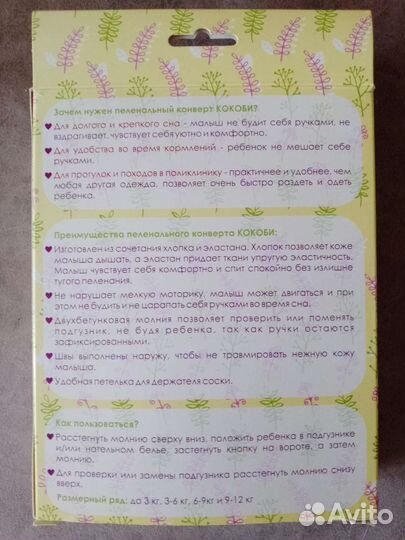 Зачем нужен пеленальный конверт КОКОБИ?
Для долгого и крепкого сна - малыш не будит себя ручками, не
вздрагивает, чувствует себя уютно и комфортно.
Для удобства во время кормлений - ребенок не мешает себе
ручками.
Для прогулок и походов в поликлинику - практичнее и удобнее, чем
любая другая одежда, позволяет очень быстро раздеть и одеть
ребенка.
Преимущества пеленального конверта КОКОБИ:
Изготовлен из сочетания хлопка и эластана. Хлопок позволяет коже
малыша дышать, а эластан придает ткани упругую эластичность.
Малыш чувствует себя комфортно и спит спокойно без излишне
тугого пеленания.
Не нарушает мелкую моторику, малыш может двигаться и при
этом не будить и не царапать себя ручками во время сна.
Двухбегунковая молния позволяет проверить или поменять
подгузник, не будя ребенка, так как ручки остаются
зафиксированными.
Швы выполнены наружу, чтобы не травмировать нежную кожу
малыша.
Удобная петелька для держателя соски.
Как пользоваться?
Расстегнуть молнию сверху вниз, положить ребенка в подгузнике
и/или нательном белье, застегнуть кнопку на вороте, а затем
молнию.
Для проверки или замены подгузника расстегнуть молнию снизу
вверх.
Размерный ряд: до 3 кг, 3-6 кг, 6-9кг и 9-12 кг
Avito